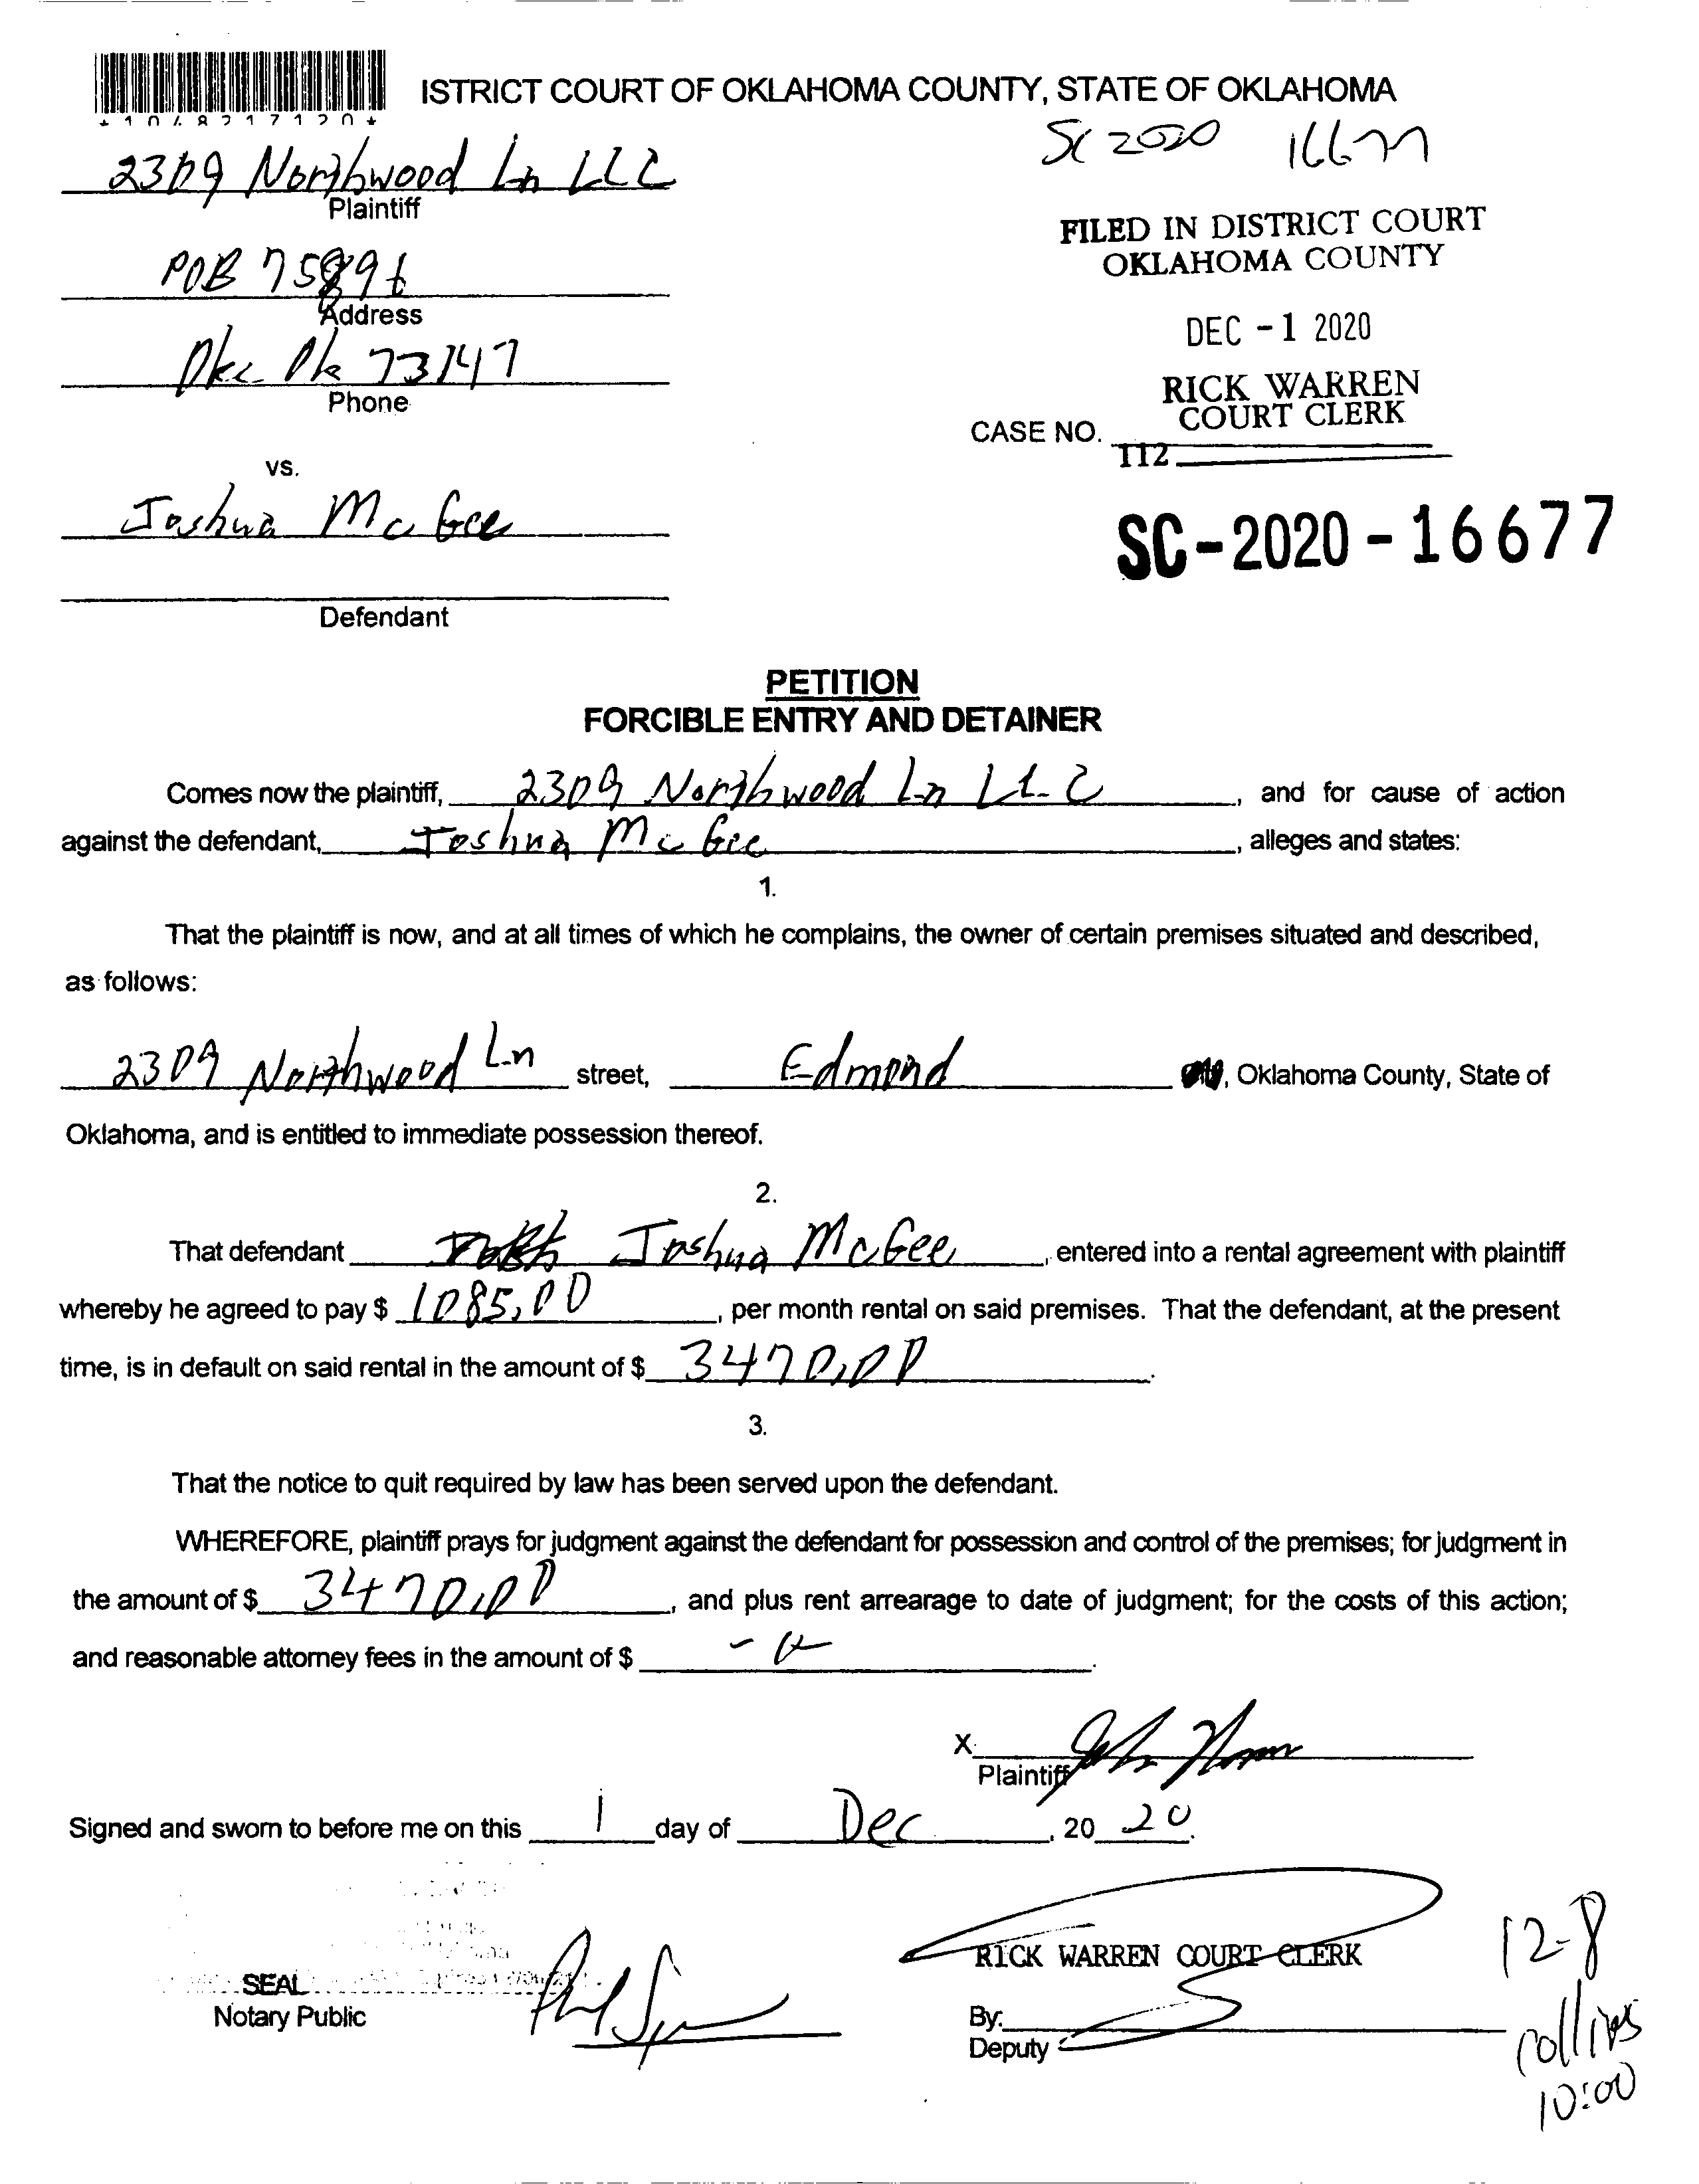 ISTRICT COURT OF OKLAHOMA COUNTY, STATE OF OKLAHOMA
*1048217120*
SC 2020 16677
2309 Northwood Ln LLC
Plaintiff
FILED IN DISTRICT COURT
OKLAHOMA COUNTY
POB 75896
Address
DEC -1 2020
Okc Ok 73147
Phone
RICK WARREN
COURT CLERK
CASE NO.
112
vs.
Joshua McGee
SC-2020-16677
Defendant
PETITION
FORCIBLE ENTRY AND DETAINER
Comes now the plaintiff, 2309 Northwood Ln LLC, and for cause of action
against the defendant, Joshua McGee, alleges and states:
1.
That the plaintiff is now, and at all times of which he complains, the owner of certain premises situated and described,
as follows:
2309 Northwood Ln street, Edmond, Oklahoma County, State of
Oklahoma, and is entitled to immediate possession thereof.
2.
That defendant Joshua McGee, entered into a rental agreement with plaintiff
whereby he agreed to pay $ 1085,00, per month rental on said premises. That the defendant, at the present
time, is in default on said rental in the amount of $ 3470,00.
3.
That the notice to quit required by law has been served upon the defendant.
WHEREFORE, plaintiff prays for judgment against the defendant for possession and control of the premises; for judgment in
the amount of $ 3470,00, and plus rent arrearage to date of judgment; for the costs of this action;
and reasonable attorney fees in the amount of $
X
Plaintiff
Signed and sworn to before me on this 1 day of Dec, 20 20.
RICK WARREN COURT CLERK
12-8
SEAL
Notary Public
By:
Deputy
collins
10:00